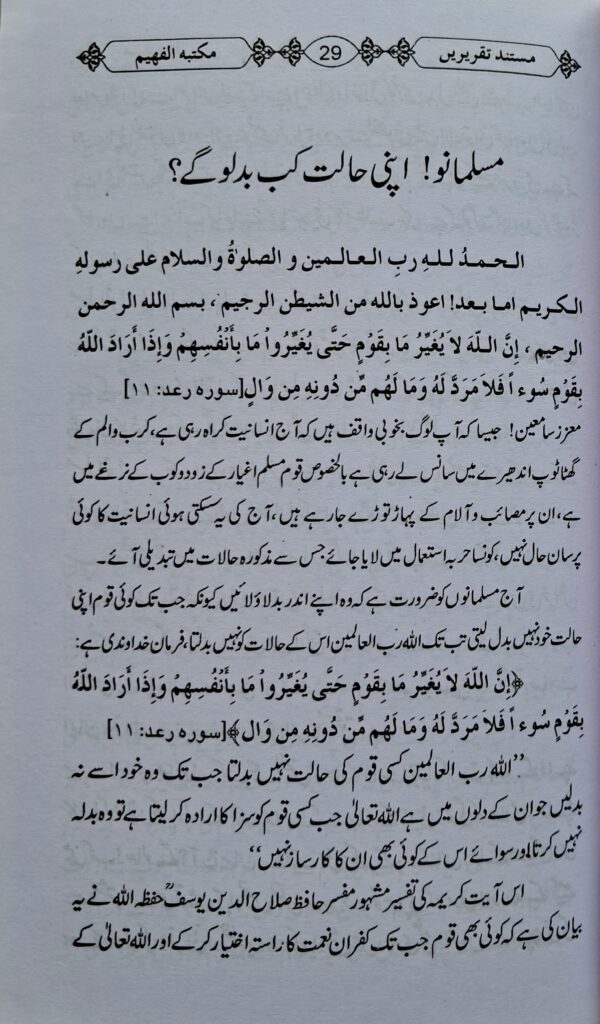 مستند تقریریں 29 مکتبہ الفہیم
مسلمانو! اپنی حالت کب بدلو گے؟
الـحـمـدُ لـلـهِ ربِ الـعـالـمـين و الصلوٰةُ والسلام على رسولهِ
الكريم اما بعد! اعوذ بالله من الشيطن الرجيم ، بسم الله الرحمن
الرحيم ، إِنَّ اللّهَ لاَ يُغَيِّرُ مَا بِقَوْمٍ حَتَّى يُغَيِّرُواْ مَا بِأَنْفُسِهِمْ وَإِذَا أَرَادَ اللّهُ
بِقَوْمٍ سُوءاً فَلاَ مَرَدَّ لَهُ وَمَا لَهُم مِّن دُونِهِ مِن وَالٍ[سورہ رعد: ۱۱]
معزز سامعین! جیسا کہ آپ لوگ بخوبی واقف ہیں کہ آج انسانیت کراہ رہی ہے، کرب والم کے
گھٹا ٹوپ اندھیرے میں سانس لے رہی ہے بالخصوص قوم مسلم اغیار کے زدو کوب کے نرغے میں
ہے، ان پر مصائب و آلام کے پہاڑ توڑے جا رہے ہیں، آج کی یہ سسکتی ہوئی انسانیت کا کوئی
پرسان حال نہیں، کونسا حربہ استعمال میں لایا جائے جس سے مذکورہ حالات میں تبدیلی آئے۔
آج مسلمانوں کو ضرورت ہے کہ وہ اپنے اندر بدلاؤ لائیں کیونکہ جب تک کوئی قوم اپنی
حالت خود نہیں بدل لیتی تب تک اللہ رب العالمین اس کے حالات کو نہیں بدلتا، فرمان خداوندی ہے:
﴿إِنَّ اللّهَ لاَ يُغَيِّرُ مَا بِقَوْمٍ حَتَّى يُغَيِّرُواْ مَا بِأَنْفُسِهِمْ وَإِذَا أَرَادَ اللّهُ
بِقَوْمٍ سُوءاً فَلاَ مَرَدَّ لَهُ وَمَا لَهُم مِّن دُونِهِ مِن وَال﴾[سورہ رعد: ۱۱]
’’اللہ رب العالمین کسی قوم کی حالت نہیں بدلتا جب تک وہ خود اسے نہ
بدلیں جو ان کے دلوں میں ہے اللہ تعالیٰ جب کسی قوم کو سزا کا ارادہ کر لیتا ہے تو وہ بدلہ
نہیں کرتا اور سوائے اس کے کوئی بھی ان کا کارساز نہیں‘‘
اس آیت کریمہ کی تفسیر مشہور مفسر حافظ صلاح الدین یوسفؒ حفظہ اللہ نے یہ
بیان کی ہے کہ کوئی بھی قوم جب تک کفران نعمت کا راستہ اختیار کر کے اور اللہ تعالیٰ کے